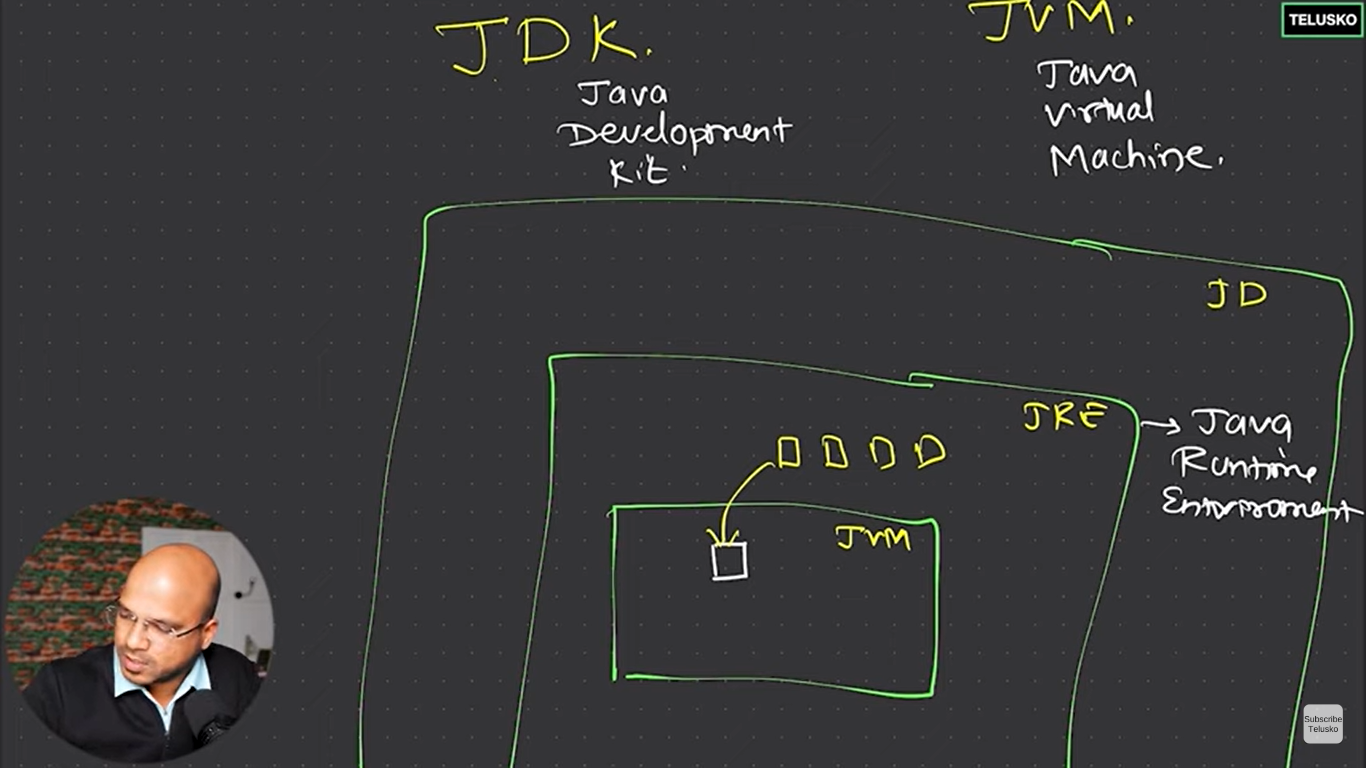 JDK.
Java
Development
Kit.
JVM.
Java
Virtual
Machine.
TELUSKO
JD
JRE
→ Java
Runtime
Environment
JVM
Subscribe
Telusko